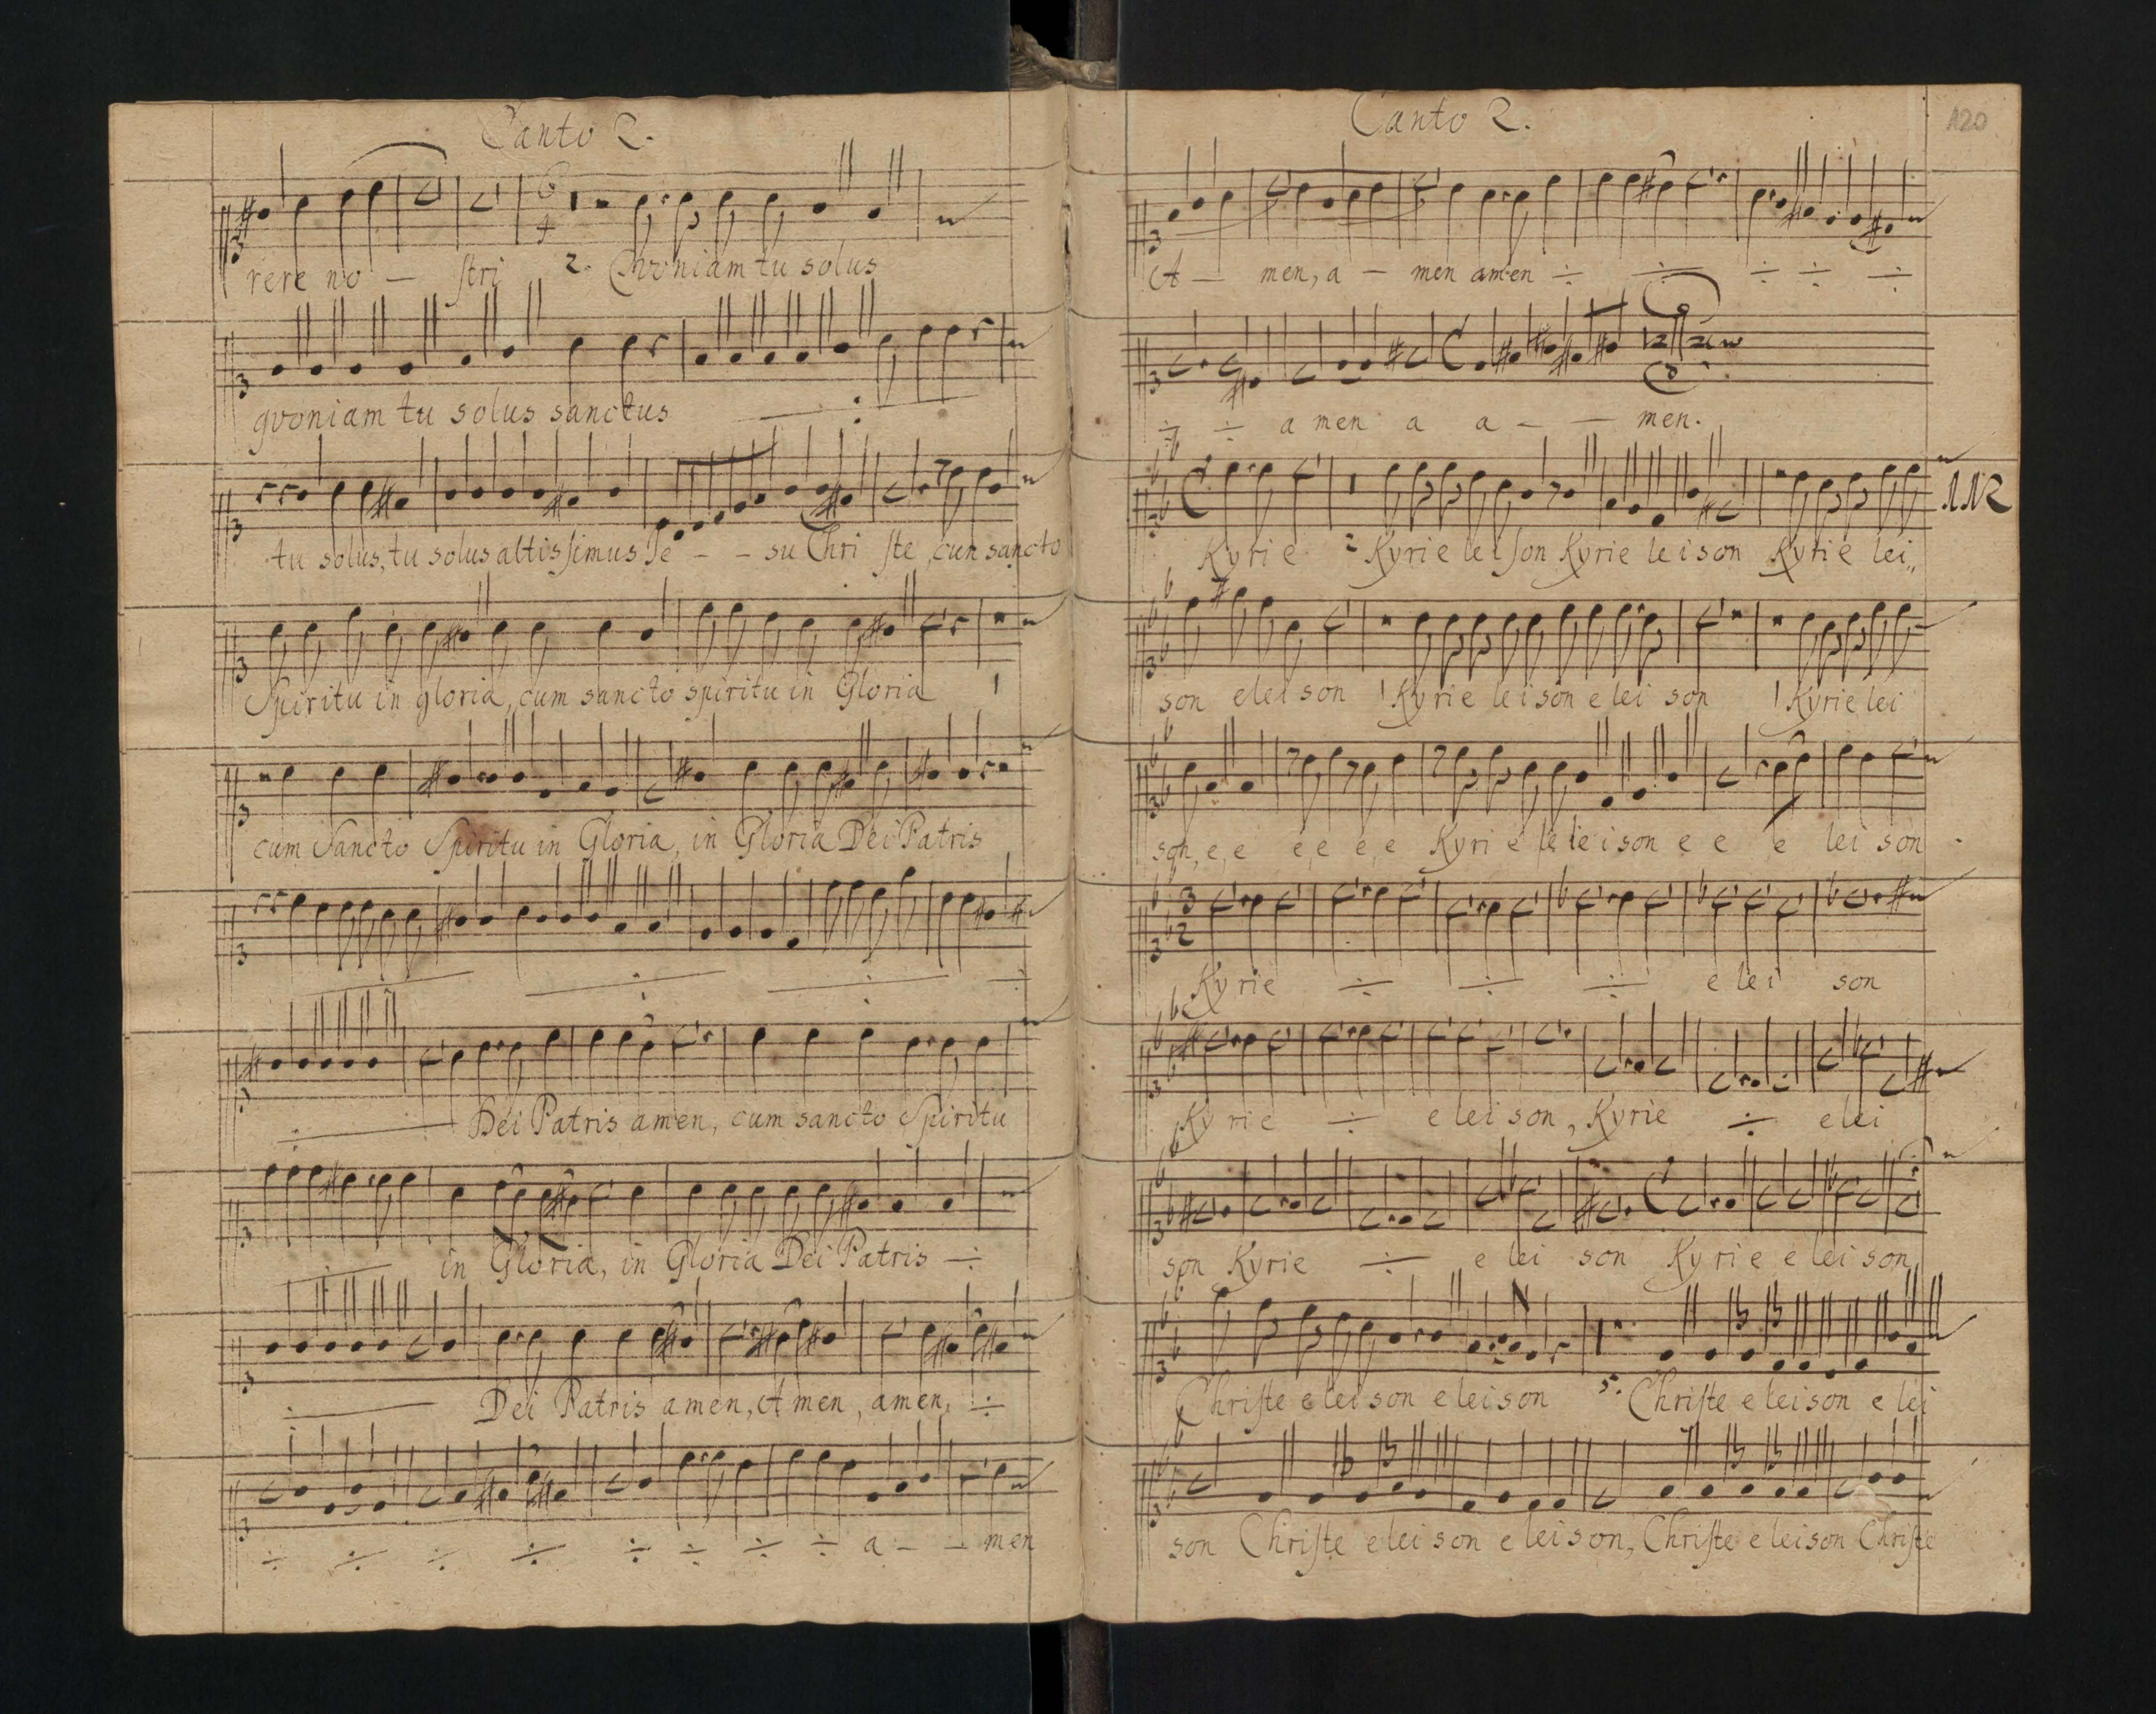 Canto 2.
rere no — stri 2. Qvoniam tu solus
qvoniam tu solus sanctus
tu solus, tu solus altissimus Je - - su Chri ste, cun sancto
Spiritu in gloria, cum sancto spiritu in Gloria 1
cum Sancto Spiritu in Gloria, in Gloria Dei Patris
Dei Patris amen, cum sancto Spiritu
in Gloria, in Gloria Dei Patris ÷
Dei Patris amen, Amen, amen, ÷
÷ ÷ ÷ ÷ ÷ ÷ ÷ ÷ a - - men
Canto 2.
120
A — men, a — men amen ÷ ÷ ÷ ÷ ÷
÷ ÷ a men a a - — men.
112
Kyrie 2 Kyrie leison Kyrie leison Kyrie lei„
son eleison 1 Kyrie leison elei son 1 Kyrie lei
son, e, e e, e e, e Kyri e le leison e e e lei son
Kyrie ÷ ÷ ÷ e lei son
Kyrie ÷ e lei son, Kyrie ÷ elei
son Kyrie ÷ e lei son Kyrie e lei son,
Christe e lei son e leison 5. Christe e leison e lei
son Christe elei son e leison, Christe e leison Christe